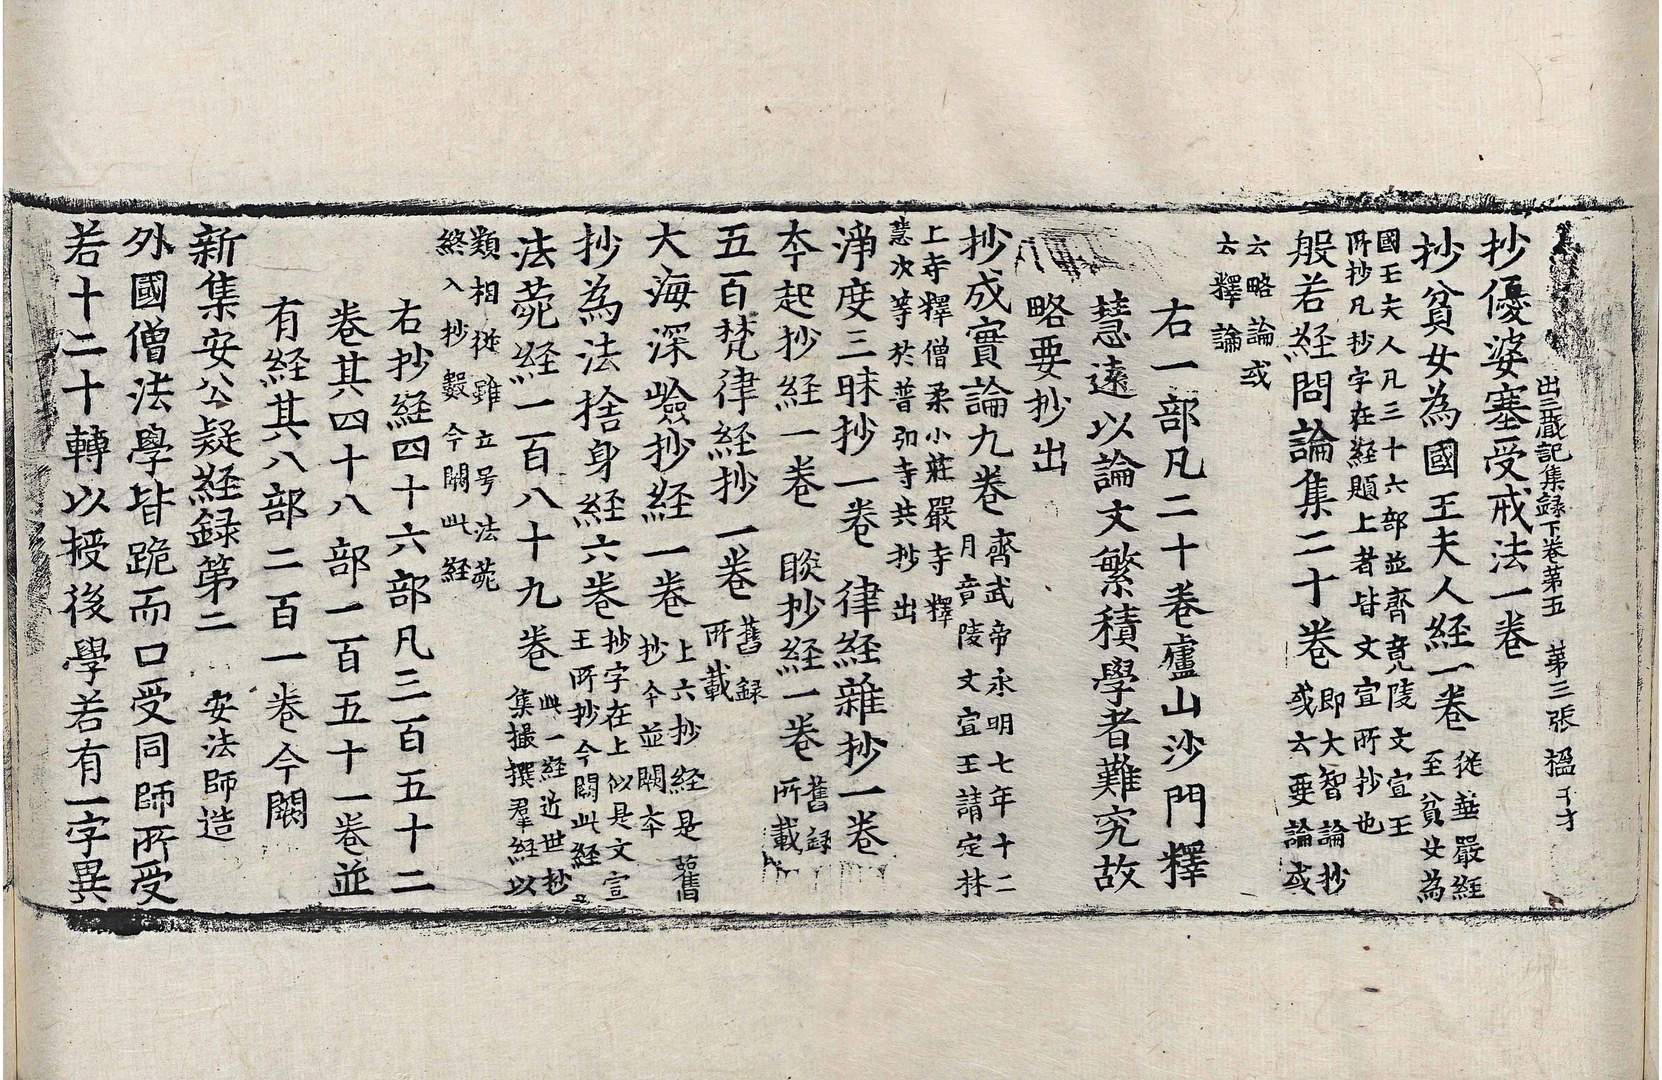 出三藏記集録下卷第五 第三張 楹
抄優婆塞受戒法一卷
抄貧女為國王夫人経一卷 従華嚴経
至貧女為
國王夫人凡三十六部並齊竟陵文宣王
所抄凡抄字在経題上者皆文宣所抄也
般若経問論集二十卷 即大智論抄
或云要論或
云略論或
云釋論
右一部凡二十卷廬山沙門釋
慧遠以論文繁積學者難究故
略要抄出
抄成實論九卷 齊武帝永明七年十二
月竟陵文宣王請定林
上寺釋僧柔小莊嚴寺釋
慧次等於普弘寺共抄出
淨度三昧抄一卷 律経雜抄一卷
夲起抄経一卷 睒抄経一卷 舊録
所載
五百梵律経抄一卷 舊録
所載
大海深嶮抄経一卷 上六抄経是舊
抄今並闕夲
抄為法捨身経六卷 抄字在上似是文宣
王所抄今闕此経
法苑経一百八十九卷 此一経近世抄
集撮撰羣経以
類相従雖立号法苑
終入抄數今闕此経
右抄経四十六部凡三百五十二
卷其四十八部一百五十一卷並
有経其八部二百一卷今闕
新集安公疑経録第二 安法師造
外國僧法學皆跪而口受同師所受
若十二十轉以授後學若有一字異